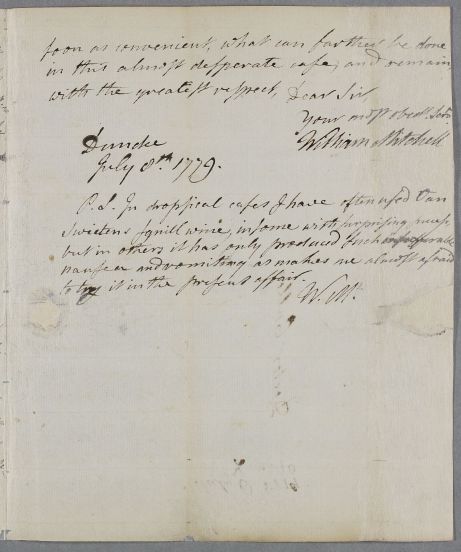 soon as convenient, what can farther be done
in this almost desperate case, and remain
with the greatest respect, Dear Sir
Your most obedt. Servt
William Mitchell
Dunscke
July 8th. 1779.
P.S. In dropsical cases I have often used Van
Swietens squill wine, in some with surprising success
but in others it has only produced such insufferable
nausea and vomiting as makes me almost afraid
to try it in the present affair.
W. Mt.